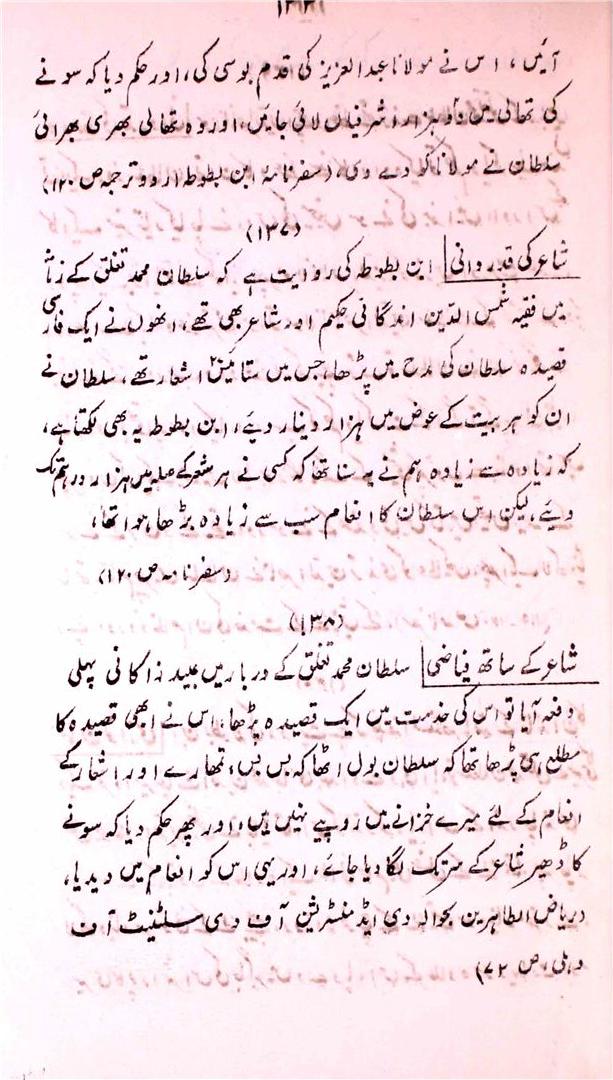 آئیں، اس نے مولانا عبدالعزیز کی قدم بوسی کی، اور حکم دیا کہ سونے
کی تھالی میں دو ہزار اشرفیاں لائی جائیں، اور وہ تھالی بھری بھرائی
سلطان نے مولانا کو دے دی، (سفرنامۂ ابن بطوطہ اردو ترجمہ ص ۱۲۰)
(۱۳۷)
شاعر کی قدردانی ابن بطوطہ کی روایت ہے کہ سلطان محمد تغلق کے زمانہ
میں فقیہ شمس الدین اندگانی حکیم اور شاعر بھی تھے، انھوں نے ایک فارسی
قصیدہ سلطان کی مدح میں پڑھا، جس میں ستائیس۲۷ اشعار تھے، سلطان نے
ان کو ہر بیت کے عوض میں ہزار دینار دیئے، ابن بطوطہ یہ بھی لکھتا ہے،
کہ زیادہ سے زیادہ ہم نے یہ سنا تھا کہ کسی نے ہر شعر کے صلہ میں ہزار درہم تک
دیئے، لیکن اس سلطان کا انعام سب سے زیادہ بڑھا ہوا تھا،
(سفرنامہ ص ۱۲۰)
(۱۳۸)
شاعر کے ساتھ فیاضی سلطان محمد تغلق کے دربار میں عبید ذاکانی پہلی
دفعہ آیا تو اس کی خدمت میں ایک قصیدہ پڑھا، اس نے ابھی قصیدہ کا
مطلع ہی پڑھا تھا کہ سلطان بول اٹھا کہ بس بس، تمھارے اور اشعار کے
انعام کے لئے میرے خزانے میں روپیے نہیں ہیں، اور پھر حکم دیا کہ سونے
کا ڈھیر شاعر کے سر تک لگا دیا جائے، اور یہی اس کو انعام میں دیدیا،
(ریاض الطاہرین بحوالہ دی ایڈمنسٹریشن آف دی سلٹنیٹ آف
دہلی، ص ۷۲)